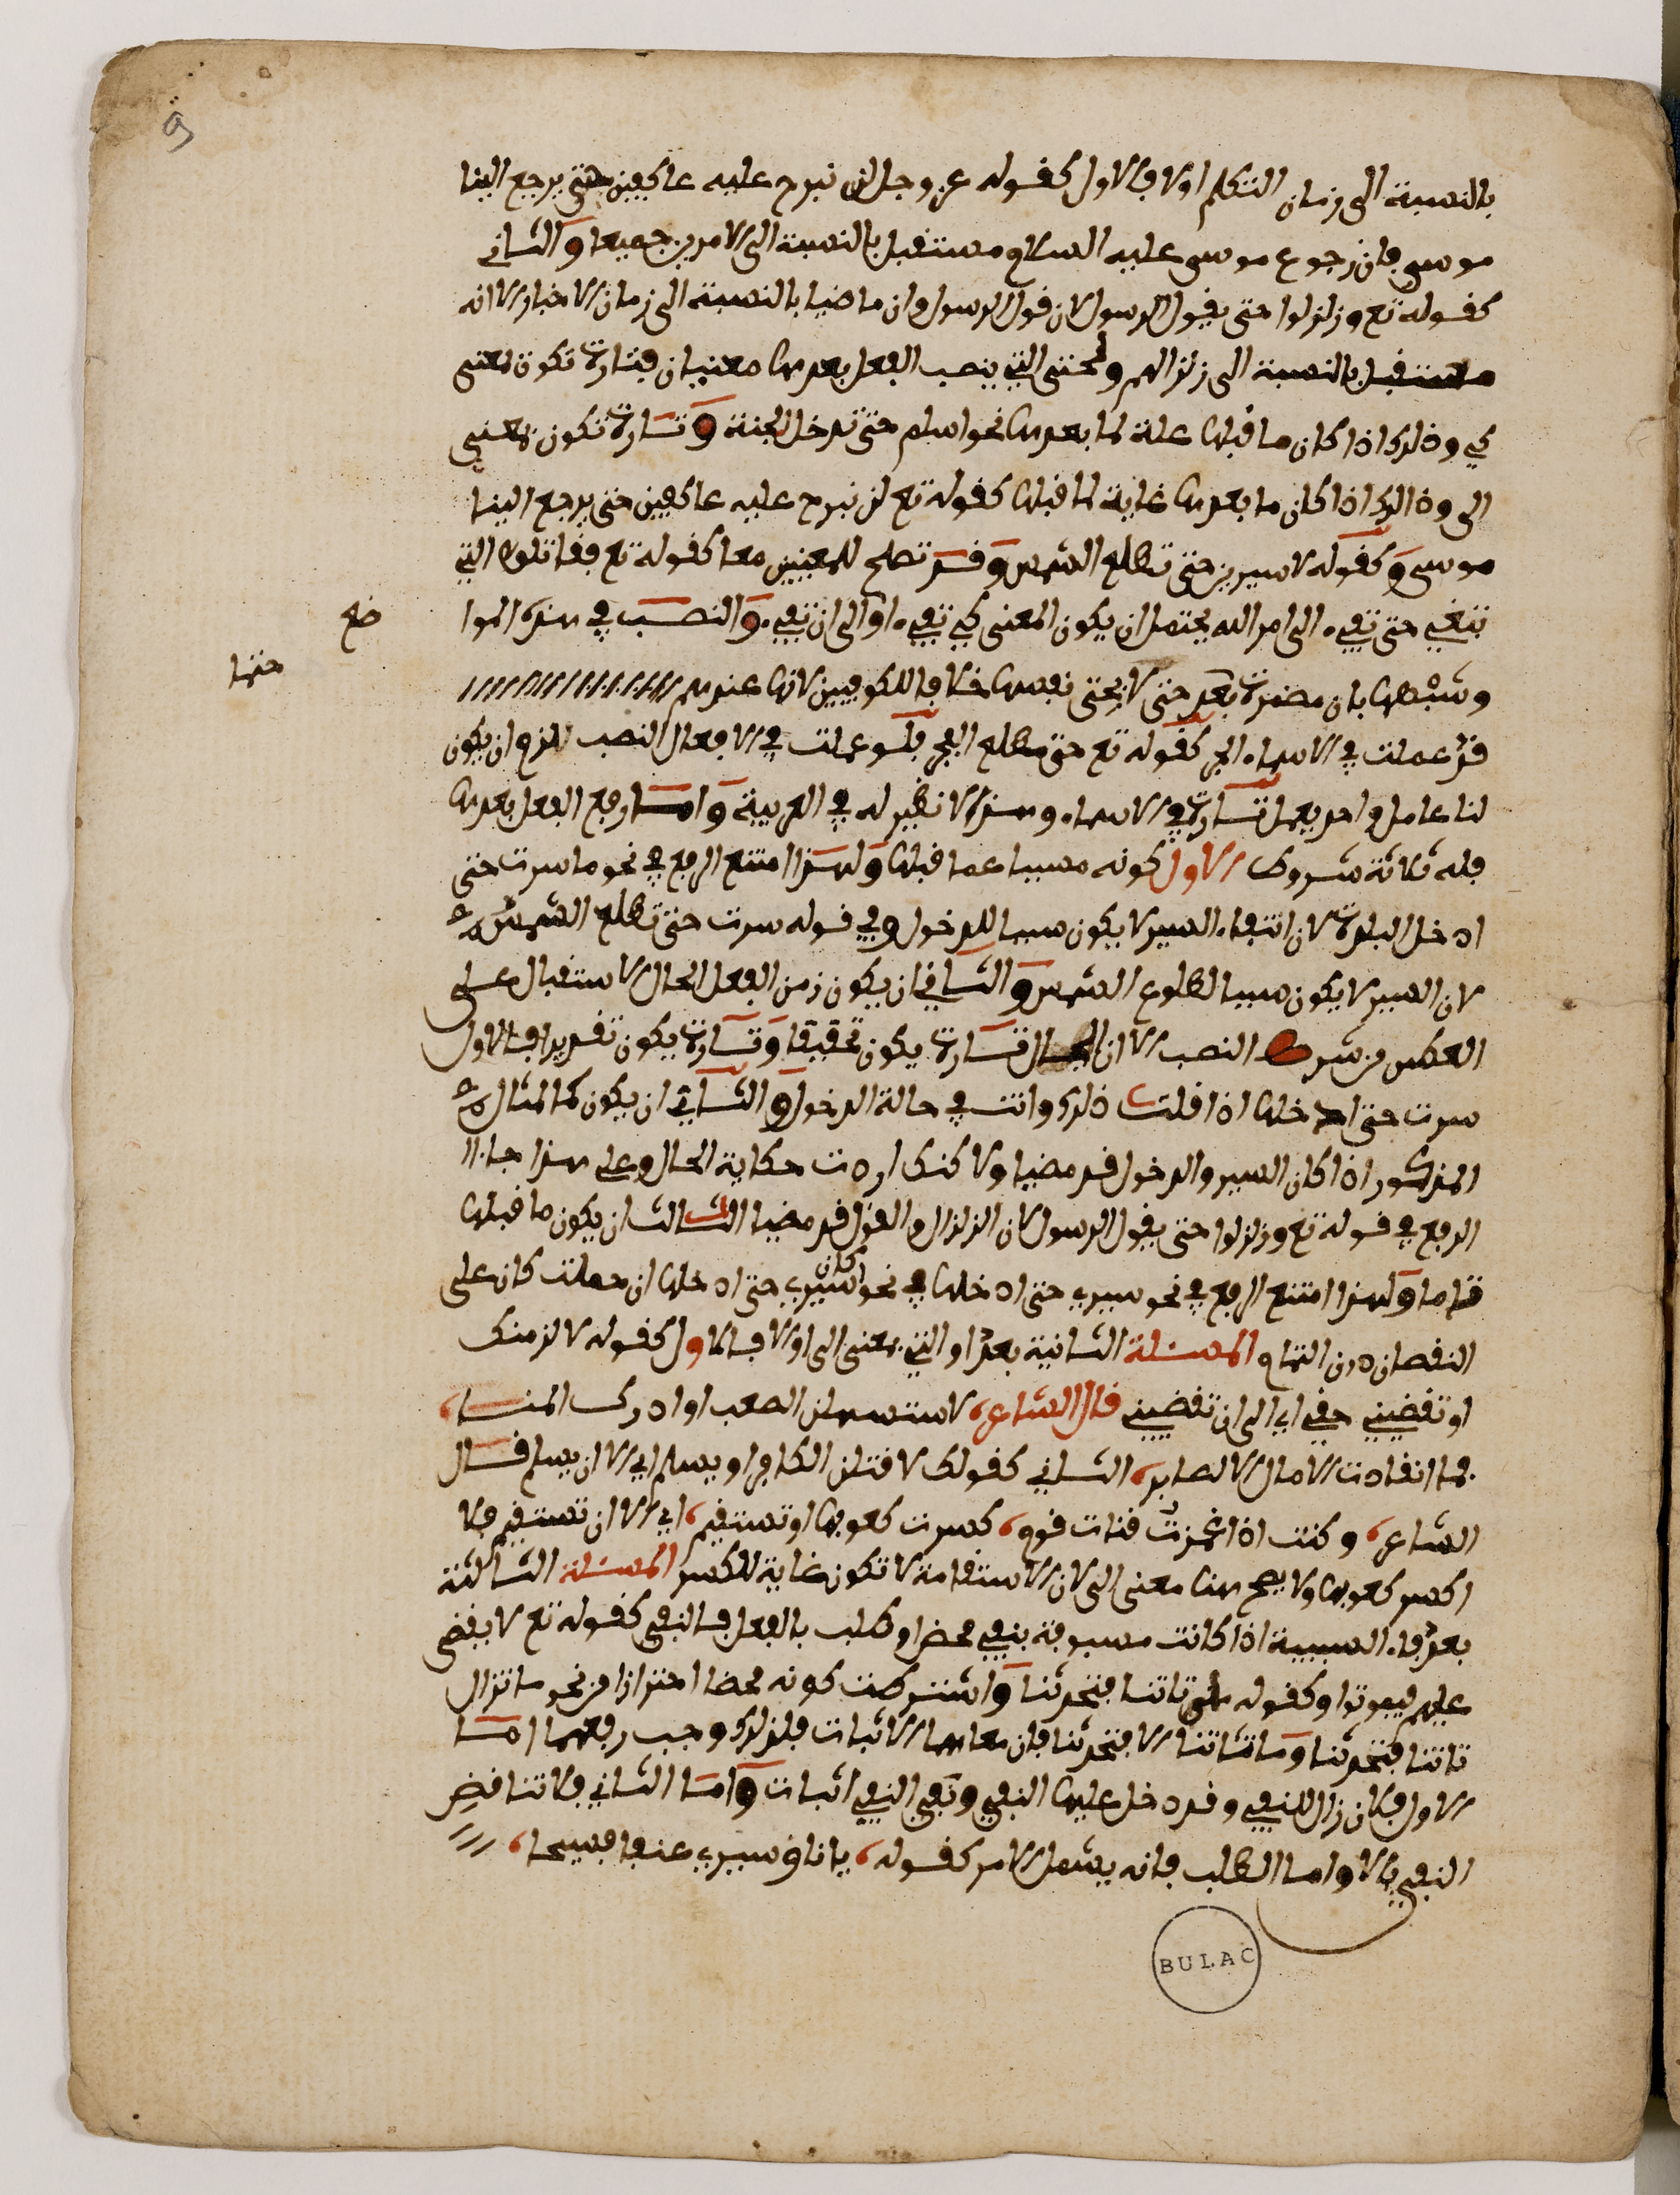 بالنسبة الى زمان التكلم اولا فالاول كقوله عز وجل لن نبرح عليه عاكفين حتى يرجع الينا
موسى فان رجوع موسى عليه السلام مستقبل بالنسبة الى الامرين جميعا والثاني
كقوله تع وزلزلوا حتى يقول الرسول لان قول الرسول وان ماضيا بالنسبة الى زمان الاخبار الا انه
مستقبل بالنسبة الى زلزالهم ولحتى التي ينصب الفعل بعدها معنيان فتارة تكون بمعنى
كي وذلك اذا كان ما قبلها علة لما بعدها نحو اسلم حتى تدخل الجنة وتارة تكون بمعنى
الى وذالك اذا كان ما بعدها غاية لما قبلها كقوله تع لن نبرح عليه عاكفين حتى يرجع الينا
موسى وكقوله لاسيرن حتى تطلع الشمس وقد تصلح للمعنيين معا كقوله تع فقاتلوا التي
تبغي حتى تفيء الى امر الله يحتمل ان يكون المعنى كي تفيء او الى ان تفيء والنصب في هذه الموا
ضع
وشبهها بان مضمرة بعد حتى لا بحتى نفسها خلافا للكوفيين لانها عندهم
حتها
قد عملت في الاسماء الجر كقوله تع حتى مطلع الفجر فلو عملت في الافعال النصب للزم ان يكون
لنا عامل واحد يعمل تارة في الاسماء وهذا لا نظير له في العربية واما رفع الفعل بعدها
فله ثلاثة شروط الاول كونه مسببا عما قبلها ولهذا امتنع الرفع في نحو ما سرت حتى
ادخل البلدة لان انتفاء السير لا يكون سببا للدخول وفي قوله سرت حتى تطلع الشمس
لان السير لا يكون سببا لطلوع الشمس والثاني ان يكون زمن الفعل الحال لاستقبال على
العكس من شرط النصب الا ان الحال تارة يكون تحقيقا وتارة يكون تقديرا فالاول
سرت حتى ادخلها اذا قلت ذلك وانت في حالة الدخول والثاني ان يكون كالمثال
المذكور اذا كان السير والدخول قد مضيا ولاكنك اردت حكاية الحال وعلى هذا جاء ا
الرفع في قوله تع وزلزلوا حتى يقول الرسول لان الزلزال والقول قد مضيا الثالث ان يكون ما قبلها
تاما ولهذا امتنع الرفع في نحو سيري حتى ادخلها في نحو كان سيري حتى ادخلها ان حملت كان على
النقصان دون التمام المسئلة الثانية بعد او التي بمعنى الى اولا فالاول كقوله لالزمنك
او تقضيني حقي اي الى ان تقضيني قال الشاعر لاستسهلن الصعب او ادرك المنا
فما انقادت الامال الا لصابر الثاني كقولك لاقتلن الكافر او يسلم اي الا ان يسلم قال
الشاعر وكنت اذا غمزت قنات قوم كسرت كعوبها او تستقيم اي الا ان تستقيم فلا
اكسر كعوبها ولا يصح هنا معنى الى لان الاستقامة لا تكون غاية للكسر المسئلة الثالثة
بعد فاء السببية اذا كانت مسبوقة بنفي محض او طلب بالفعل فالنفي كقوله تع لا يقضى
عليهم فيموتوا وكقوله ما تاتنا فتحدثنا واشترطت كونه محضا احترازا من نحو ما تزال
تاتنا فتحدثنا وما تاتنا الا فتحدثنا فان معناهما الاثبات فلذلك وجب رفعهما اما
الاول فلان زال للنفي وقد دخل عليها النفي ونفي النفي اثبات واما الثاني فلانتقاض
النفي بالا واما الطلب فانه يشمل الامر كقوله يا ناق سيري عنقا فسيحا
BULAC